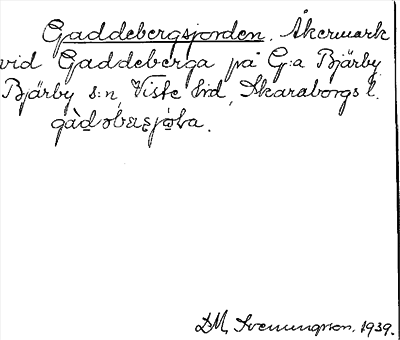 Gaddebergsjorden. Åkermark
vid Gaddeberga på G:a Bjärby
Bjärby s:n, Viste hrd, Skaraborgs l.
D.M. Svenungsson. 1939.